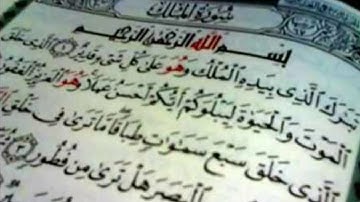 سُورَةُ المُلْكِ
بِسْمِ اللَّهِ الرَّحْمَٰنِ الرَّحِيمِ
تَبَارَكَ الَّذِي بِيَدِهِ الْمُلْكُ وَهُوَ عَلَىٰ كُلِّ شَيْءٍ قَدِيرٌ ۝١ الَّذِي خَلَقَ
الْمَوْتَ وَالْحَيَوٰةَ لِيَبْلُوَكُمْ أَيُّكُمْ أَحْسَنُ عَمَلًا وَهُوَ الْعَزِيزُ الْغَفُورُ
الَّذِي خَلَقَ سَبْعَ سَمَٰوَٰتٍ طِبَاقًا مَّا تَرَىٰ فِي خَلْقِ
الْبَصَرَ هَلْ تَرَىٰ مِن فُطُورٍ ۝٣